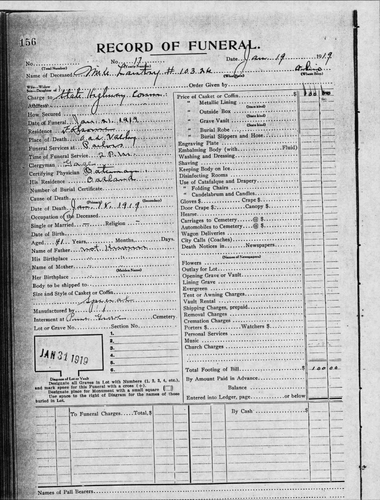 156
RECORD OF FUNERAL.
No. (Total Number) No. 17 (Yearly Number) Date, Jan. 19 1919
Name of Deceased, # 10326
Order Given by
Charge to State Highway Comm
Date of Funeral Jan. 21, 1919
Residence Folsom
Place of Death
Funeral Services at Parlors
Time of Funeral Service 2 P.M.
Clergyman
Certifying Physician
His Residence
Number of Burial Certificate
Cause of Death
Date of Death Jan. 18, 1919
Occupation of the Deceased
Single or Married Religion
Date of Birth
Aged 41 Years, Months, Days
Name of Father not known
His Birthplace
Name of Mother (Maiden Name)
Her Birthplace
Body to be shipped to
Size and Style of Casket or Coffin
Manufactured by
Interment at Cemetery
Lot or Grave No. Section No.
JAN 31 1919
Diagram of Lot or Vault
Designate all Graves in Lot with Numbers (1, 2, 3, 4, etc.),
and mark space for this Funeral with a cross (+).
Designate place for Monument with a small square
Use space to the right of Diagram for the names of those
buried in Lot.
Price of Casket or Coffin
" Metallic Lining
" Outside Box
" Grave Vault
" Burial Robe
" Burial Slippers and Hose
Engraving Plate
Embalming Body (with Fluid)
Washing and Dressing
Shaving
Keeping Body on Ice
Disinfecting Rooms
Use of Catafalque and Drapery
" Folding Chairs
" Candelabrum and Candles
Gloves $ Crape $
Door Crape $ Canopy $
Hearse
Carriages to Cemetery @ $
Automobiles to Cemetery @ $
Wagon Deliveries @ $
City Calls (Coaches) @ $
Death Notices in Newspapers
Flowers
Outlay for Lot
Opening Grave or Vault
Lining Grave
Evergreen
Tent or Awning Charges
Vault Rental
Shipping Charges, prepaid
Removal Charges
Cremation Charges
Porters $ Watchers $
Personal Services
Music
Church Charges
Total Footing of Bill $ 100 00
By Amount Paid in Advance
Balance
Entered into Ledger, page or below
To Funeral Charges Total, $
By Cash $
Names of Pall Bearers